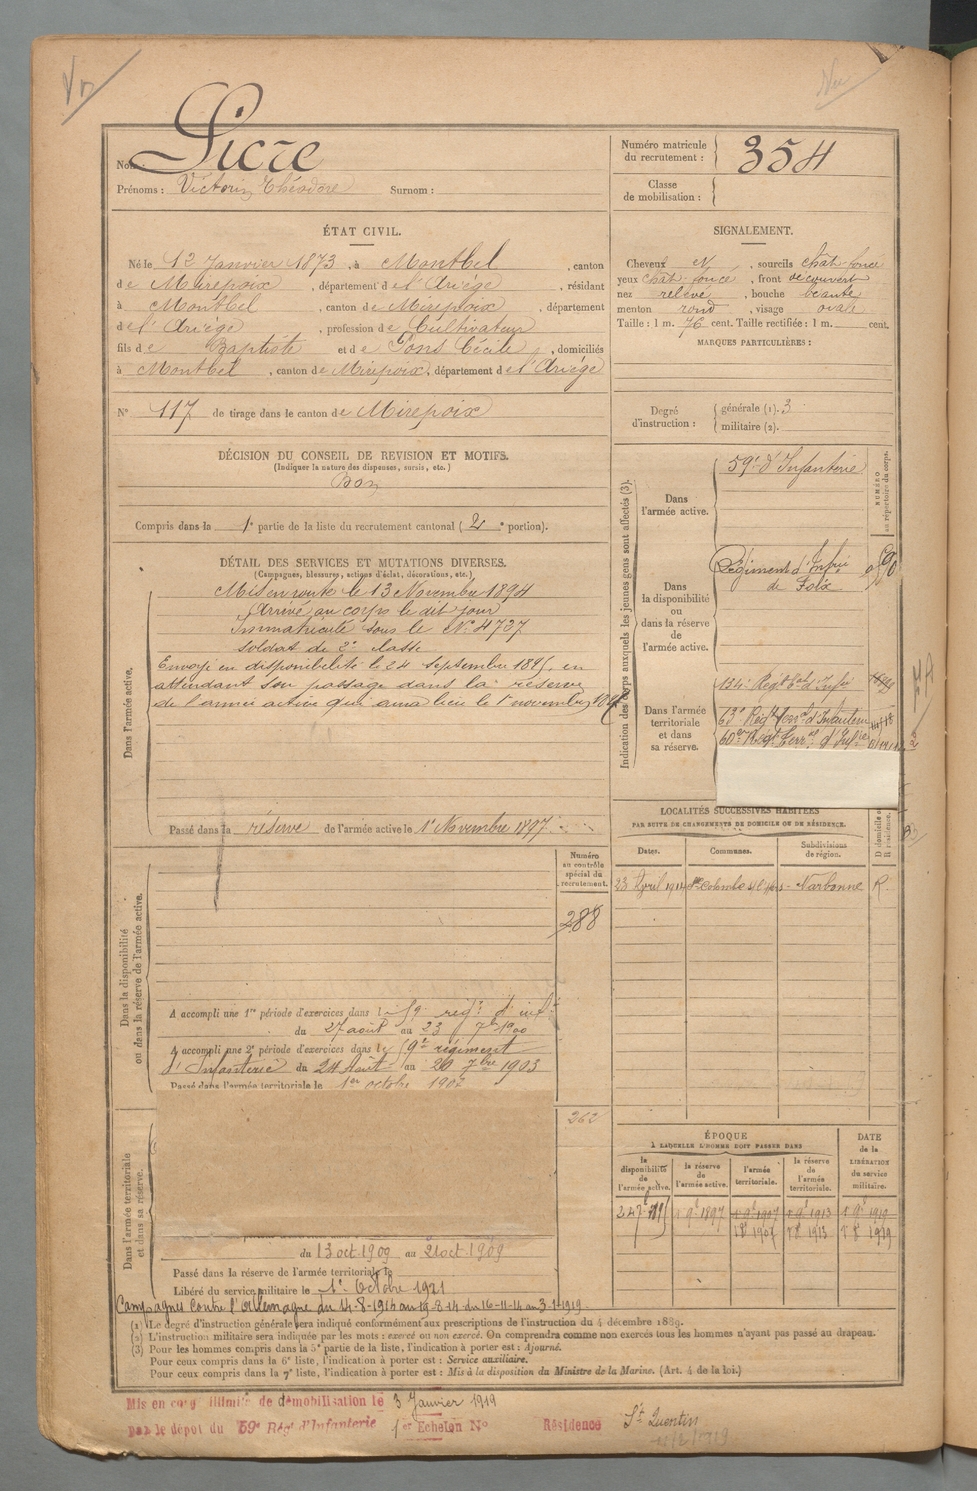 Vu
Vu
Nom: Sicre
Prénoms : Victorin Théodore Surnom :
Numéro matricule du recrutement : 354
Classe de mobilisation :
ÉTAT CIVIL.
Né le 12 Janvier 1873, à Montbel, canton
de Mirepoix, département de l'Ariège, résidant
à Montbel, canton de Mirepoix, département
de l'Ariège, profession de Cultivateur
fils de Baptiste et de Pons Cécile, domiciliés
à Montbel, canton de Mirepoix, département de l'Ariège
N° 117 de tirage dans le canton de Mirepoix
SIGNALEMENT.
Cheveux N, sourcils chât. foncé
yeux chât. foncé, front découvert
nez relevé, bouche béante
menton rond, visage ovale
Taille : 1 m. 76 cent. Taille rectifiée : 1 m. cent.
MARQUES PARTICULIÈRES :
Degré d'instruction : générale (1). 3
militaire (2).
DÉCISION DU CONSEIL DE REVISION ET MOTIFS.
(Indiquer la nature des dispenses, sursis, etc.)
Bon
Compris dans la 1e partie de la liste du recrutement cantonal ( 2 e portion).
DÉTAIL DES SERVICES ET MUTATIONS DIVERSES.
(Campagnes, blessures, actions d'éclat, décorations, etc.)
Dans l'armée active.
Mis en route le 13 Novembre 1894
Arrivé au corps le dit jour
Immatriculé sous le N° 4727
soldat de 2e classe
Envoyé en disponibilité le 24 septembre 1895, en
attendant son passage dans la réserve
de l'armée active qui aura lieu le 1er novembre 1897
Passé dans la réserve de l'armée active le 1er Novembre 1897
Indication des corps auxquels les jeunes gens sont affectés (3).
NUMÉRO au répertoire du corps.
Dans l'armée active.
59e d'Infanterie
Dans la disponibilité ou dans la réserve de l'armée active.
Régiment d'Infrie
de Foix
Dans l'armée territoriale et dans sa réserve.
134e Régt Ter. d'Infie
63e Régt Terral d'Infanterie
60e Régt Terral d'Infie
LOCALITÉS SUCCESSIVES HABITÉES
PAR SUITE DE CHANGEMENTS DE DOMICILE OU DE RÉSIDENCE.
Dates. Communes. Subdivisions de région. D domicile ou R résidence.
23 Avril 1914 Ste Colombe Narbonne R.
Dans la disponibilité ou dans la réserve de l'armée active.
Numéro au contrôle spécial du recrutement.
288
A accompli une 1re période d'exercices dans le 59 régt d'inf.
du 27 août au 23 7bre 1900
A accompli une 2e période d'exercices dans le 59e régiment
d'Infanterie du 24 Août au 20 7bre 1903
Passé dans l'armée territoriale le 1er octobre 1907
262
Dans l'armée territoriale et dans sa réserve.
du 13 oct. 1909 au 21 oct. 1909
Passé dans la réserve de l'armée territoriale le
Libéré du service militaire le 1er Octobre 1921
Campagnes contre l'Allemagne du 14-8-1914 au 19-8-14 du 16-11-14 au 3-1-1919
ÉPOQUE
À LAQUELLE L'HOMME DOIT PASSER DANS
DATE de la LIBÉRATION du service militaire.
la disponibilité de l'armée active. la réserve de l'armée active. l'armée territoriale. la réserve de l'armée territoriale.
24 7bre 1895 1 9bre 1897 1 9bre 1907 1 9bre 1913 1 9bre 1919
1 8bre 1907 1 8bre 1913 1 8bre 1919
(1) Le degré d'instruction générale sera indiqué conformément aux prescriptions de l'instruction du 4 décembre 1889.
(2) L'instruction militaire sera indiquée par les mots : exercé ou non exercé. On comprendra comme non exercés tous les hommes n'ayant pas passé au drapeau.
(3) Pour les hommes compris dans la 5e partie de la liste, l'indication à porter est : Ajourné.
Pour ceux compris dans la 6e liste, l'indication à porter est : Service auxiliaire.
Pour ceux compris dans la 7e liste, l'indication à porter est : Mis à la disposition du Ministre de la Marine. (Art. 4 de la loi.)
Mis en congé illimité de démobilisation le 3 Janvier 1919
Par le dépôt du 59e Rég. d'Infanterie 1er Echelon N° Résidence St Quentin